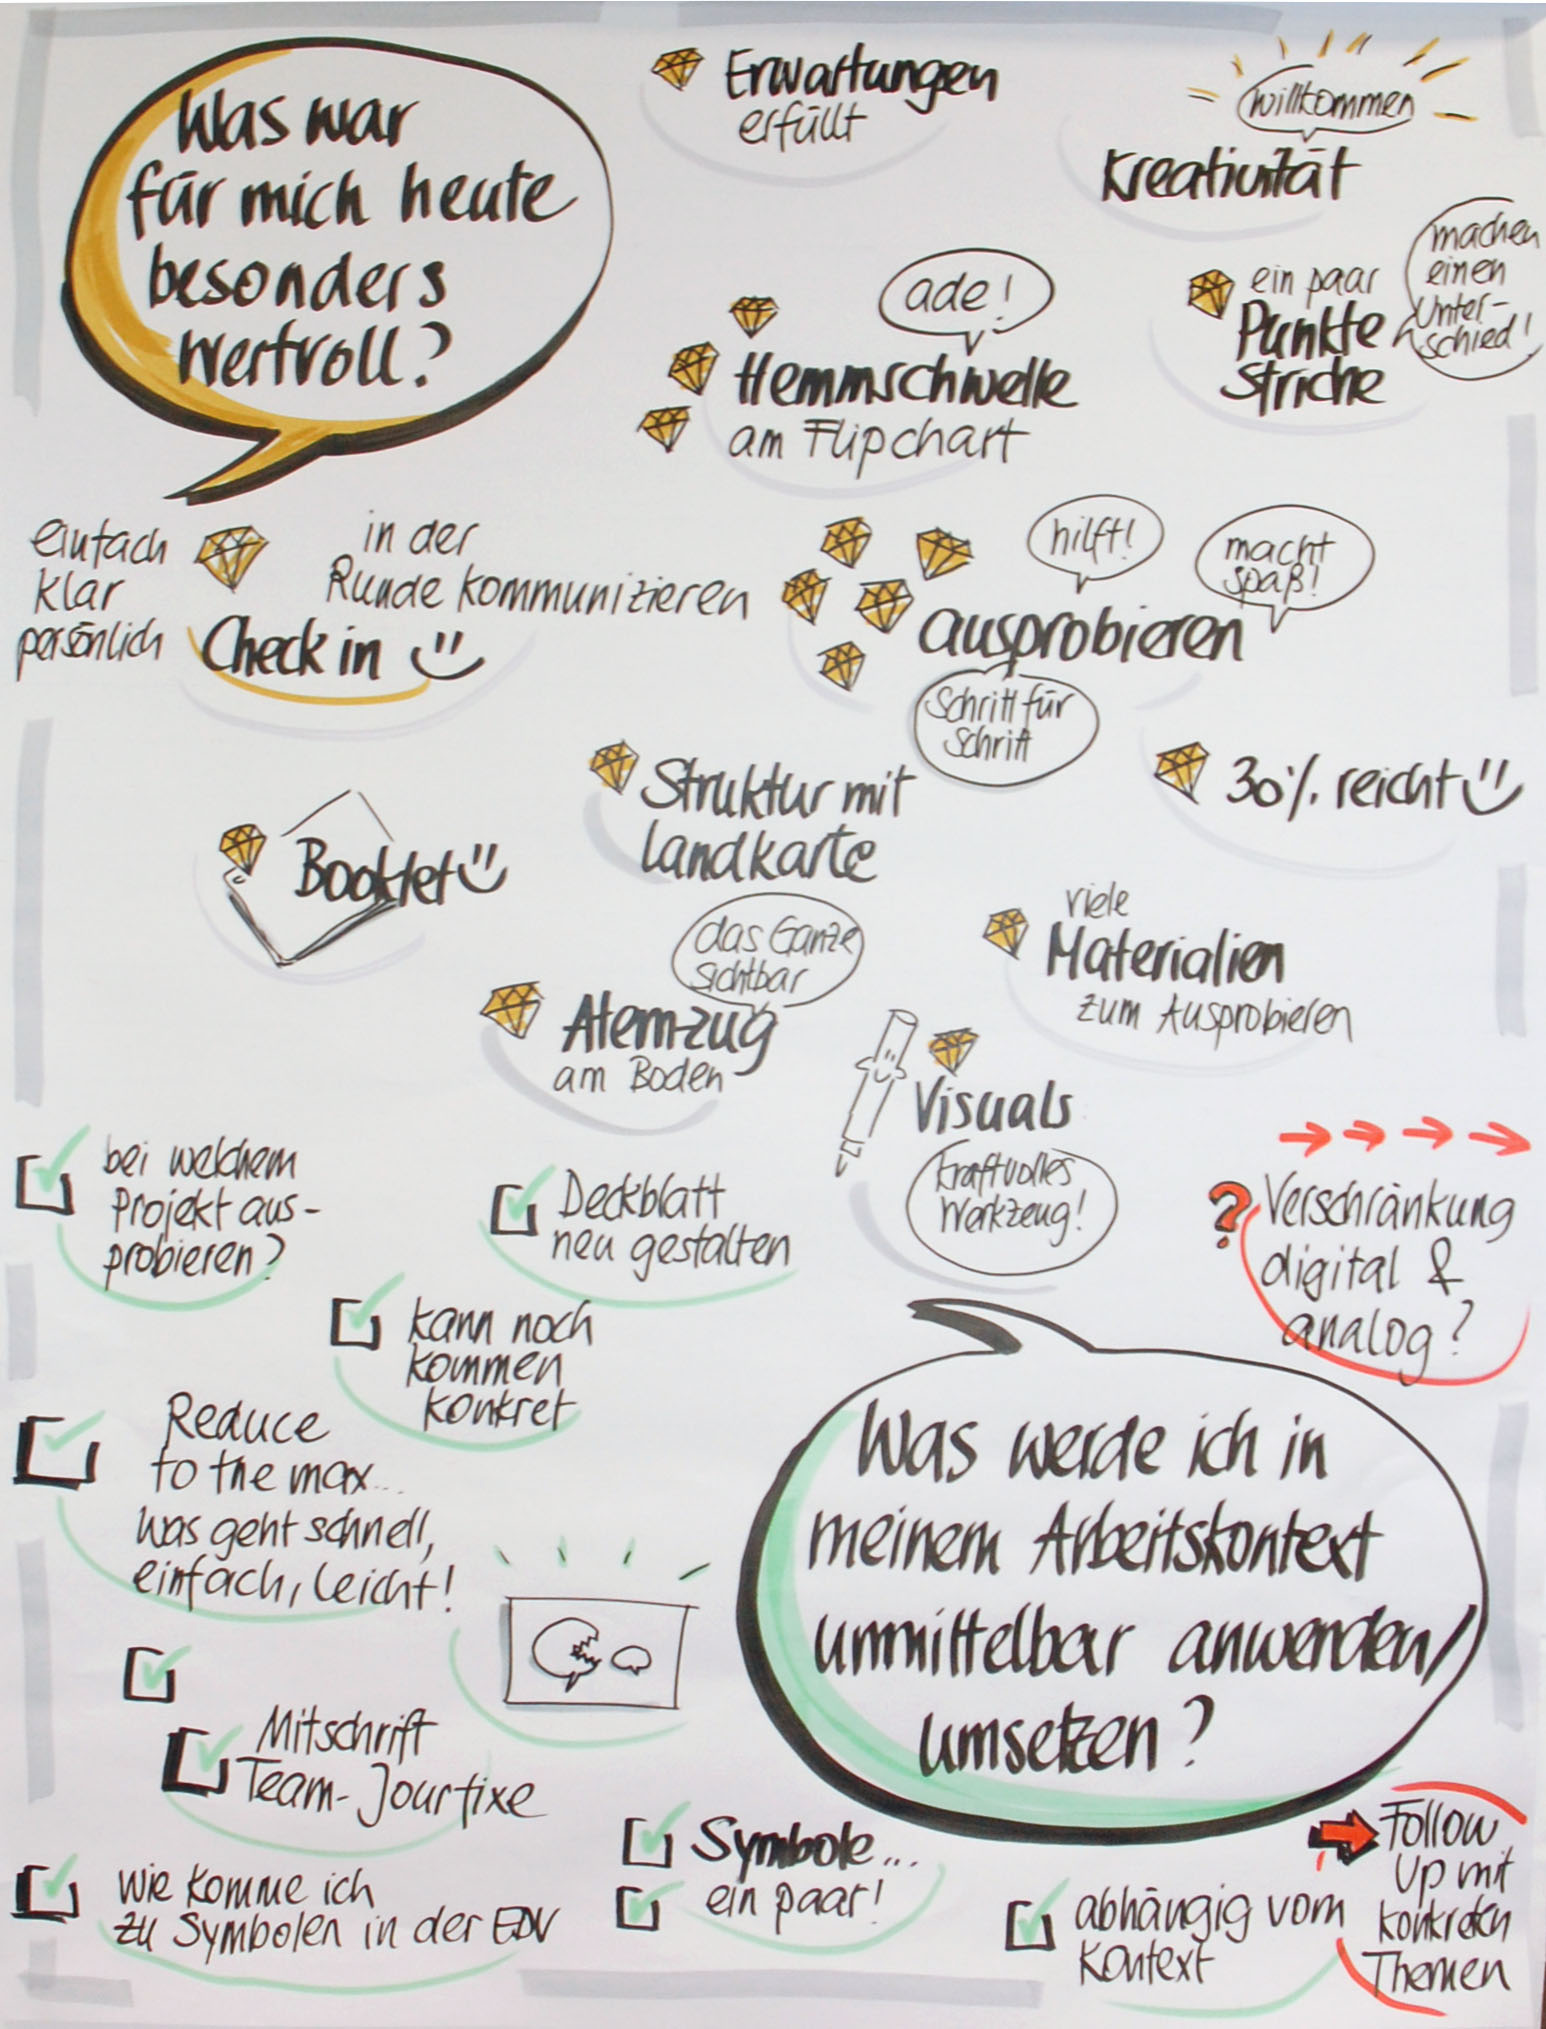 Was war
für mich heute
besonders
wertvoll?
Erwartungen
erfüllt
willkommen
Kreativität
ade!
Hemmschwelle
am Flipchart
ein paar
Punkte
Striche
machen
einen
Unter-
schied!
einfach
klar
persönlich
Check in
in der
Runde kommunizieren
hilft!
macht
spaß!
ausprobieren
Schritt für
Schritt
Struktur mit
Landkarte
30% reicht
Booklet
das Ganze
sichtbar
Atemzug
am Boden
viele
Materialien
zum Ausprobieren
Visuals
kraftvolles
Werkzeug!
bei welchem
Projekt aus-
probieren?
Deckblatt
neu gestalten
? Verschränkung
digital &
analog?
kann noch
kommen
konkret
Reduce
to the max...
Was geht schnell,
einfach, leicht!
Was werde ich in
meinem Arbeitskontext
unmittelbar anwenden/
umsetzen?
Mitschrift
Team-Jourfixe
Symbole...
ein paar!
wie komme ich
zu Symbolen in der EDV
abhängig vom
Kontext
Follow
Up mit
konkreten
Themen